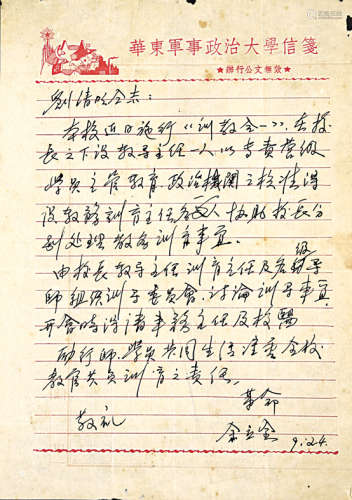 華東軍事政治大學信箋
★辦行公文無效★
劉清明同志：
本校近日施行“訓教合一”，在校
長之下設教導主任一人以專責營級
學員之管教育，政治機關之核准得
設教務訓育主任各一人協助校長分
別處理教務訓育事宜。
由校長教導主任訓育主任及各級導
師組織訓導委員會，討論訓導事宜
開會時得請事務主任及校醫
勵行師、學員共同生活準委全校
教官共負訓育之責任。
革命
敬礼
余立金
9.24.